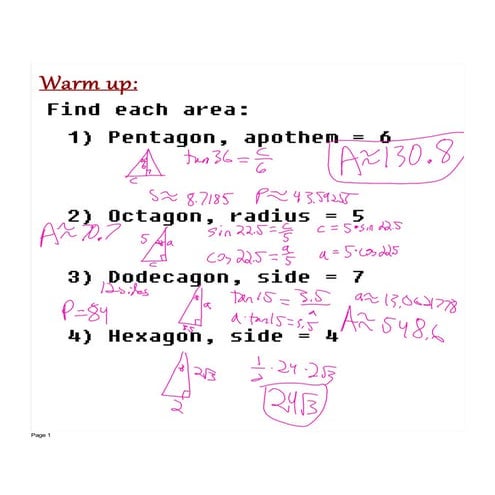 Warm up:
Find each area:
1) Pentagon, apothem = 6
6 c
tan 36 = c/6
A≈130.8
s≈ 8.7185 P≈ 43.59255
2) Octagon, radius = 5
A≈70.7
5 a c
sin 22.5 = c/5 c = 5·sin 22.5
cos 22.5 = a/5 a = 5·cos 22.5
3) Dodecagon, side = 7
12 sides
P=84
a 3.5
tan 15 = 3.5/a
a·tan15=3.5
a≈13.0621778
A≈548.6
4) Hexagon, side = 4
2√3
2
1/2·24·2√3
24√3
Page 1